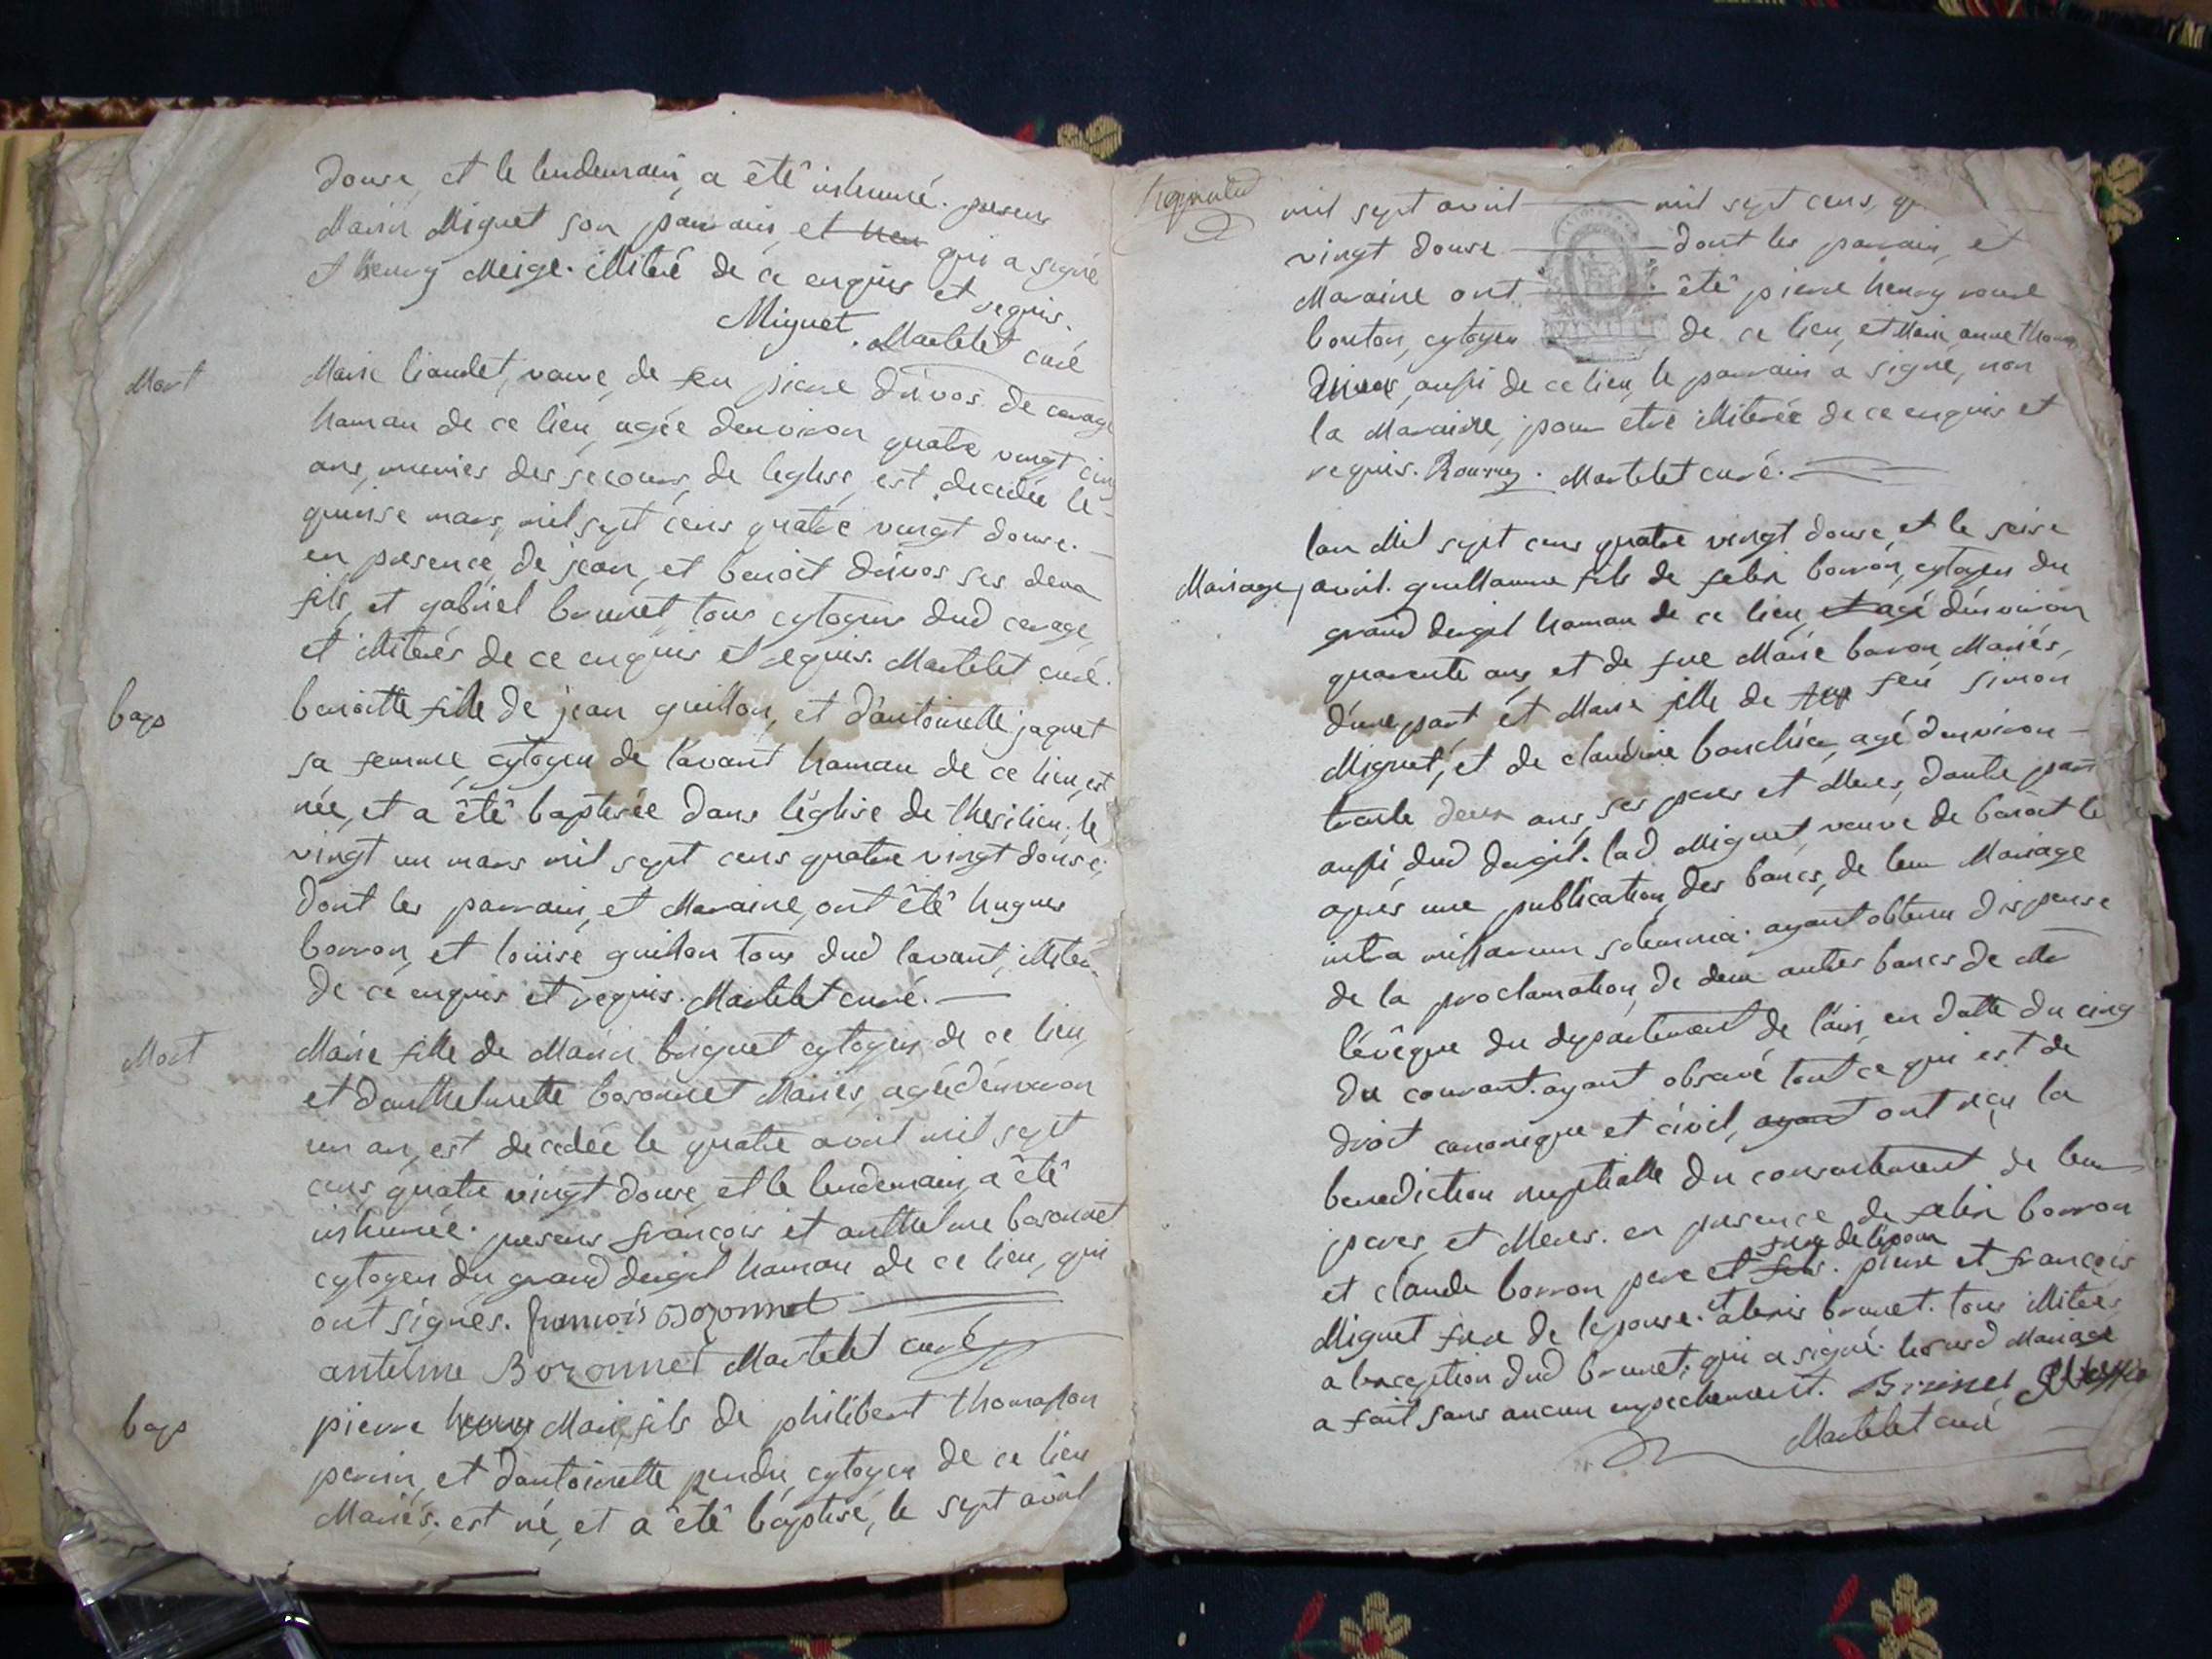 douse, et le lendemain, a êtê inhumé. presens
Marin Miguet son parrain, et qui a signé
et henry Meige. illiteré de ce enquis et requis.
Miguet. Martelet curé
Mort
Marie liaudet, vauve, de feu pierre drivos de cavage
hamau de ce lieu, agée denviron quatre vingt cinq
ans, munies des secours, de leglise, est decedée le
quinse mars, mil sept cens quatre vingt douse.
en presence, de jean, et benoit drivos ses deux
fils, et gabriel brunet tous cytoyens dud cavage,
et illiterés de ce enquis et requis. Martelet curé.
bap
benoitte fille de jean guillon, et d'antoinette jaquet
sa femme, cytoyen de lavant hamau de ce lieu, est
née, et a êtê baptisée dans l'église de thesilieu, le
vingt un mars mil sept cens quatre vingt douse,
dont les parrain, et Maraine, ont êtê hugues
borron, et louise guillon tous dud lavant, illiteré
de ce enquis et requis. Martelet curé.
Mort
Marie fille de Marin briguet cytoyen, de ce lieu,
et d'anthelmette bozonnet Mariés, agée d'environ
un an, est decedée le quatre avril mil sept
cens, quatre vingt douse, et le lendemain, a êtê
inhumée. presens françois et anthelme bozonnet
cytoyen du grand dergil hamau de ce lieu, qui
ont signés. françois Bozonnet
antelme Bozonnet Martelet curé
bap
pierre henry Marie, fils de philibert thomasson
perrin, et d'antoinette cytoyen de ce lieu
Mariés. est né, et a êtê baptisé, le sept avril
mil sept avril mil sept cens, q
vingt douse dont les parrain, et
Maraine ont êtê pierre henry
bouton, cytoyen de ce lieu, et Marie anne
aussi de ce lieu, le parrain a signé, non
la Maraine, pour etre illiterée de ce enquis et
requis. Martelet curé.
lan Mil sept cens quatre vingt douse, et le seise
Mariage
avril. guillaume fils de felix borron, cytoyen du
grand dergil hamau de ce lieu, et agé d'environ
quarente ans et de fue Marie barron, Mariés,
d'une part et Marie fille de feu simon
Miguet, et de claudine bouchier, agé denviron
trante deux ans, ses peres et Meres, dautre part
aussi dud dergil. lad Miguet, veuve de benoit le
après une publication, des bancs, de leur Mariage
intra missarum solemnia. ayant obtenu dispense
de la proclamation, de deux autres bancs de Mr
lévêque du departement de l'ain, en datte du cinq
du courant. ayant observé tout ce qui est de
droit canonique et civil, ayant ont reçu la
benediction nuptialle du consentement de leur
peres, et Meres. en presence de felix borron
et claude borron pere et fils. frere de lepoux pierre et françois
Miguet frere de lepouse. et alexis brunet. tous illiterés
a lexception dud brunet, qui a signé. Mariage
a fait sans aucun empechement. Brunet
Martelet curé